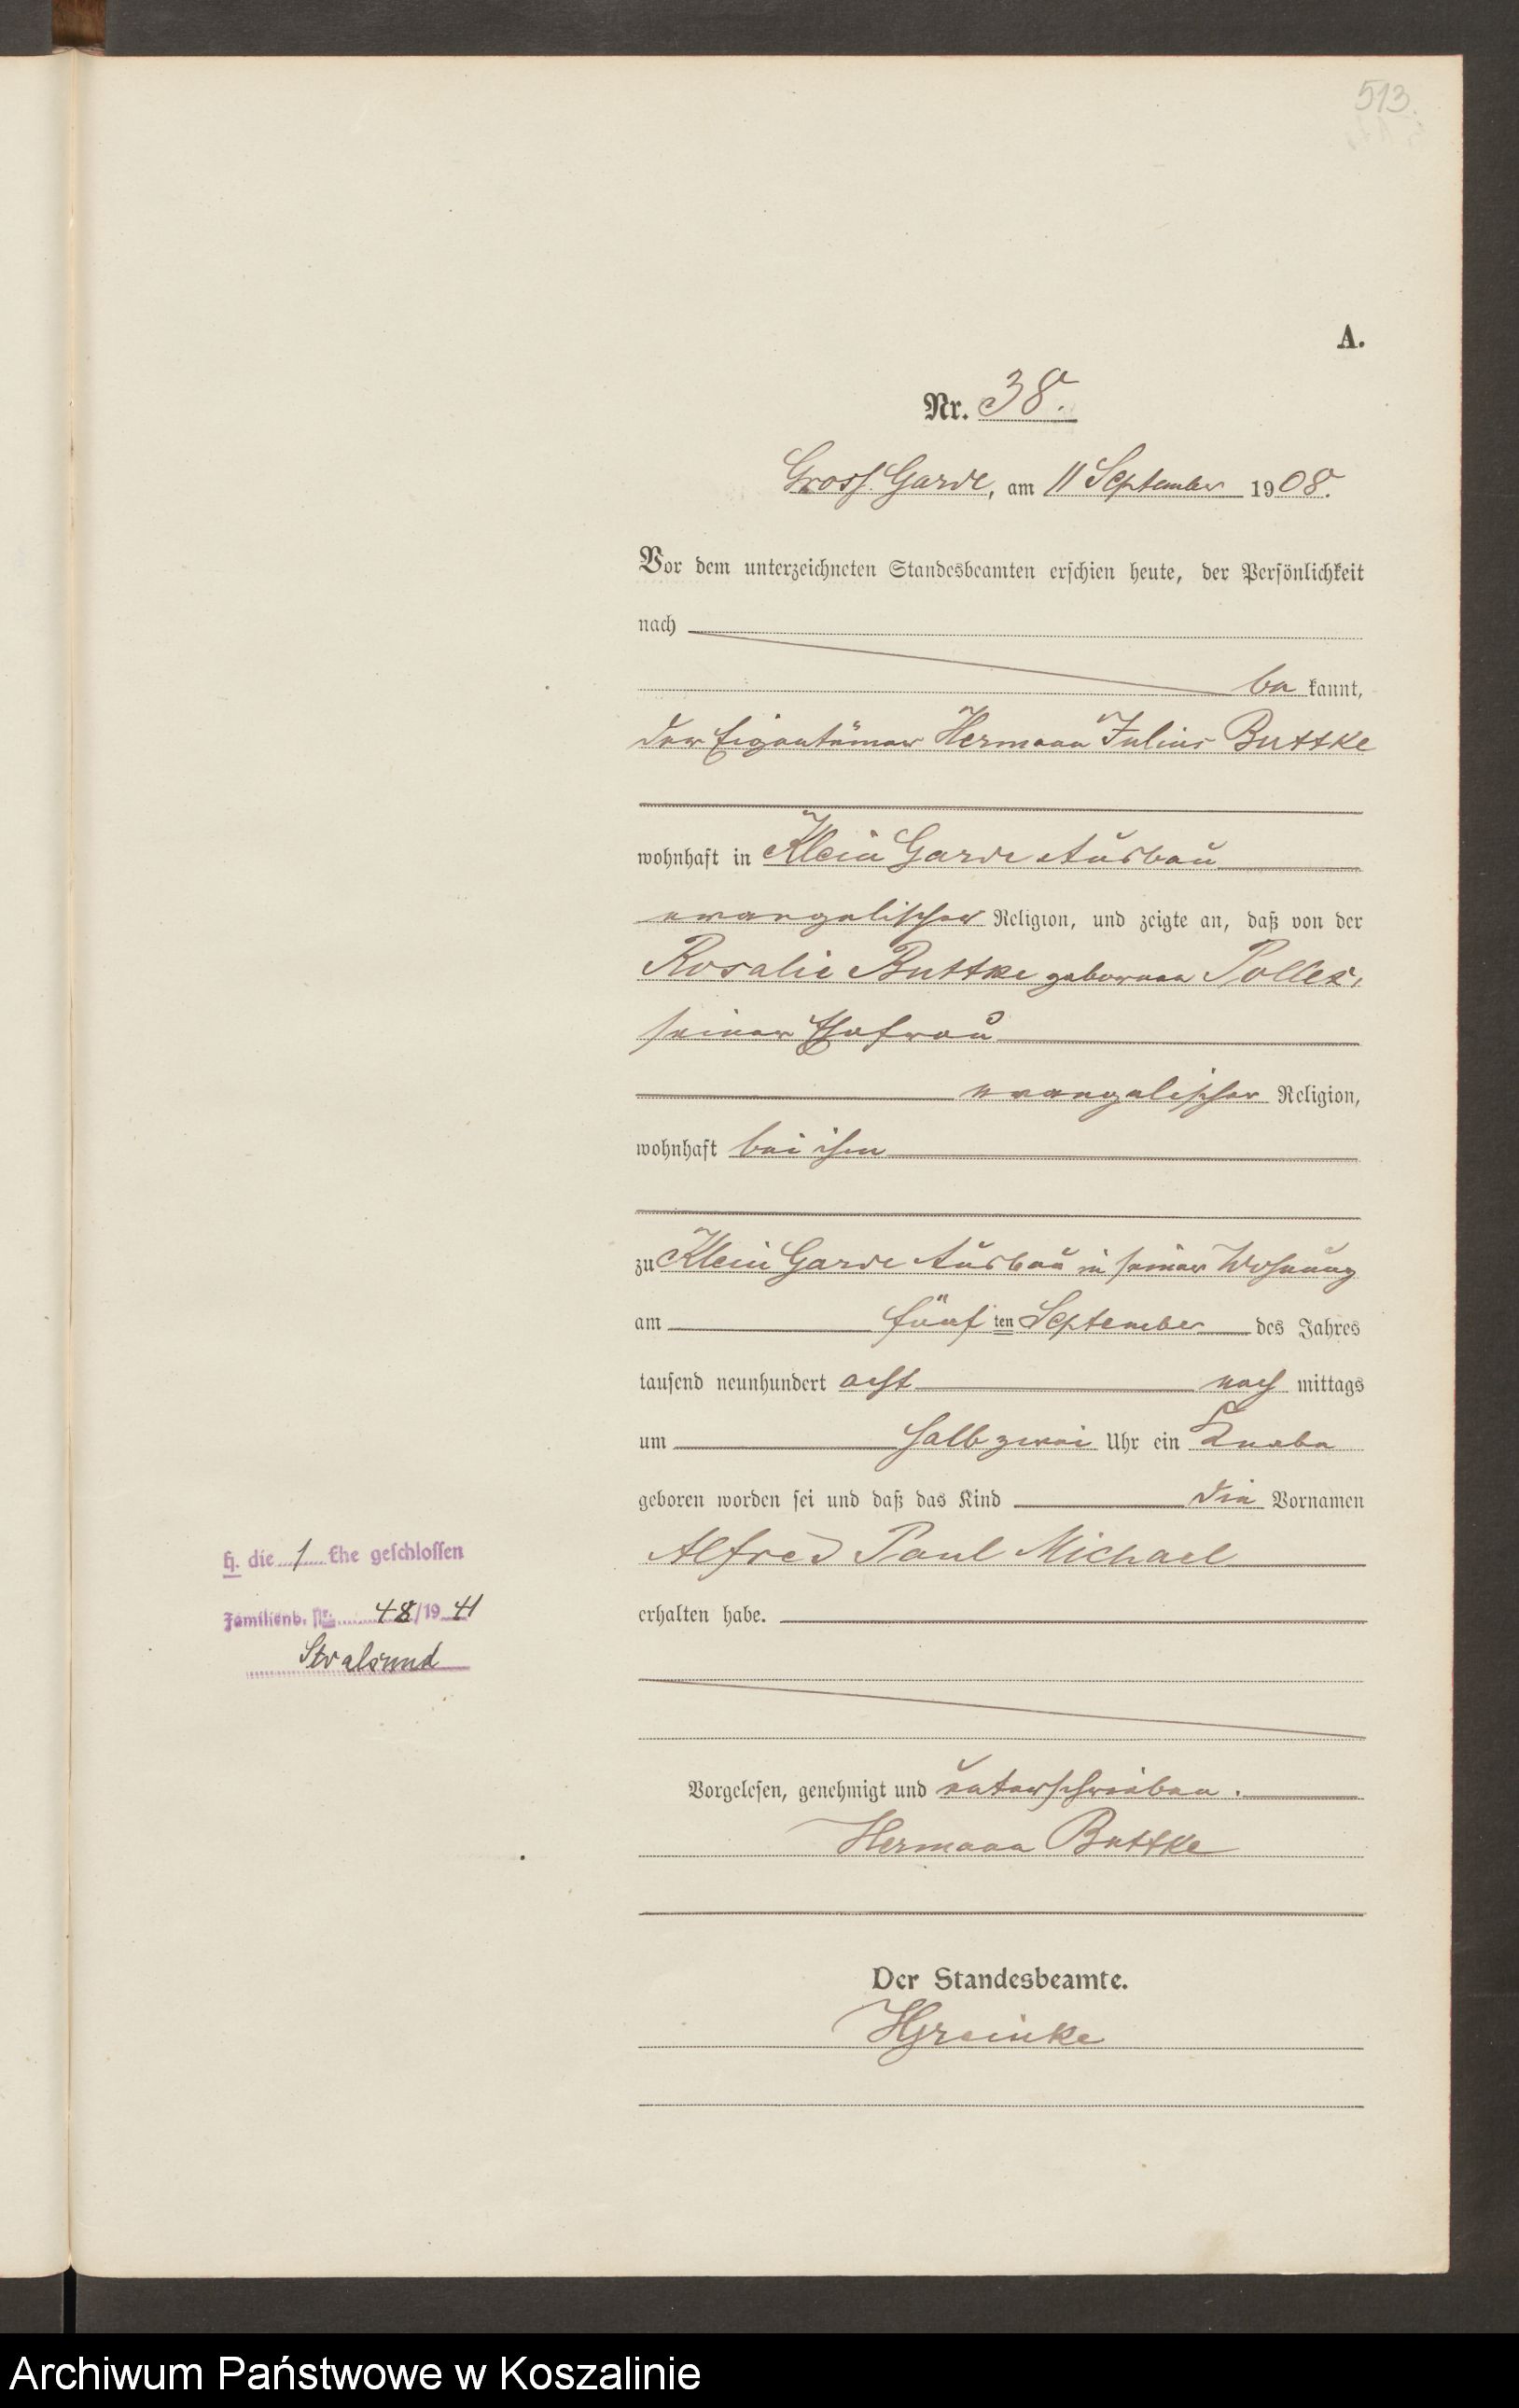 513.
A.
Nr. 38.
Gross Garde, am 11 September 1908.
Vor dem unterzeichneten Standesbeamten erschien heute, der Persönlichkeit
nach
be kannt,
der Eigentümer Hermann Julius Buttke
wohnhaft in Klein Garde Ausbau
evangelischer Religion, und zeigte an, daß von der
Rosalie Buttke geborenen Pollex,
seiner Ehefrau
evangelischer Religion,
wohnhaft bei ihm
zu Klein Garde Ausbau in seiner Wohnung
am fünf ten September des Jahres
tausend neunhundert acht nach mittags
um halb zwei Uhr ein Knabe
geboren worden sei und daß das Kind die Vornamen
Alfred Paul Michael
erhalten habe.
H. die 1 Ehe geschlossen
Familienb. Nr. 48/19 41
Stralsund
Vorgelesen, genehmigt und unterschrieben.
Hermann Buttke
Der Standesbeamte.
Archiwum Państwowe w Koszalinie